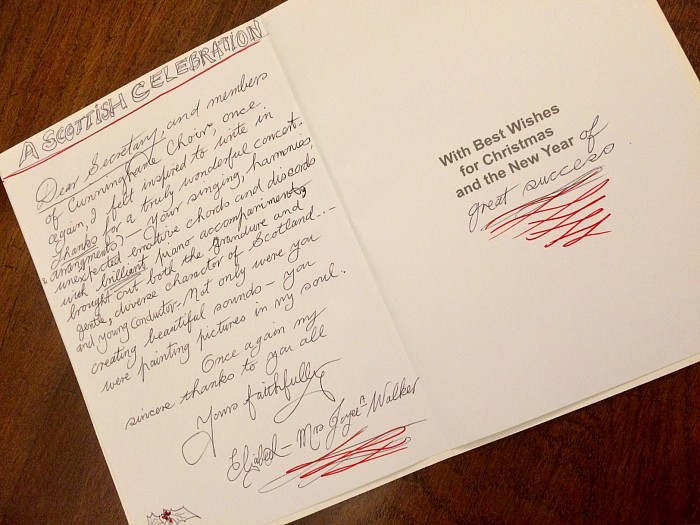 A SCOTTISH CELEBRATION
Dear Secretary, and members
of Cunninghame Choir, once
again, I felt inspired to write in
thanks for a truly wonderful concert.
– Your singing, harmonies,
unexpected emotive chords and discords
with brilliant piano accompaniments,
brought out both the Grandure and
gentle, diverse character of Scotland..–
and young Conductor – Not only were you
creating beautiful sounds – you
were painting pictures in my soul.
Once again my
sincere thanks to you all
Yours faithfully
Mrs Joyce A Walker
With Best Wishes
for Christmas
and the New Year of
great success